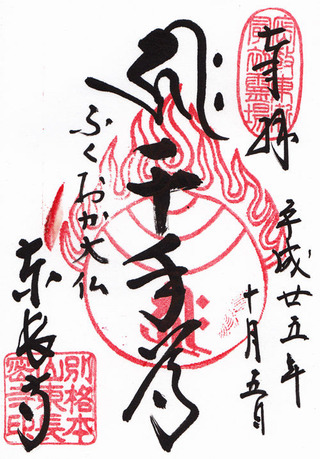 奉拝
平成廿五年
十月五日
千手尊
ふくおか大仏
東長寺
別格本
山東長
密寺印